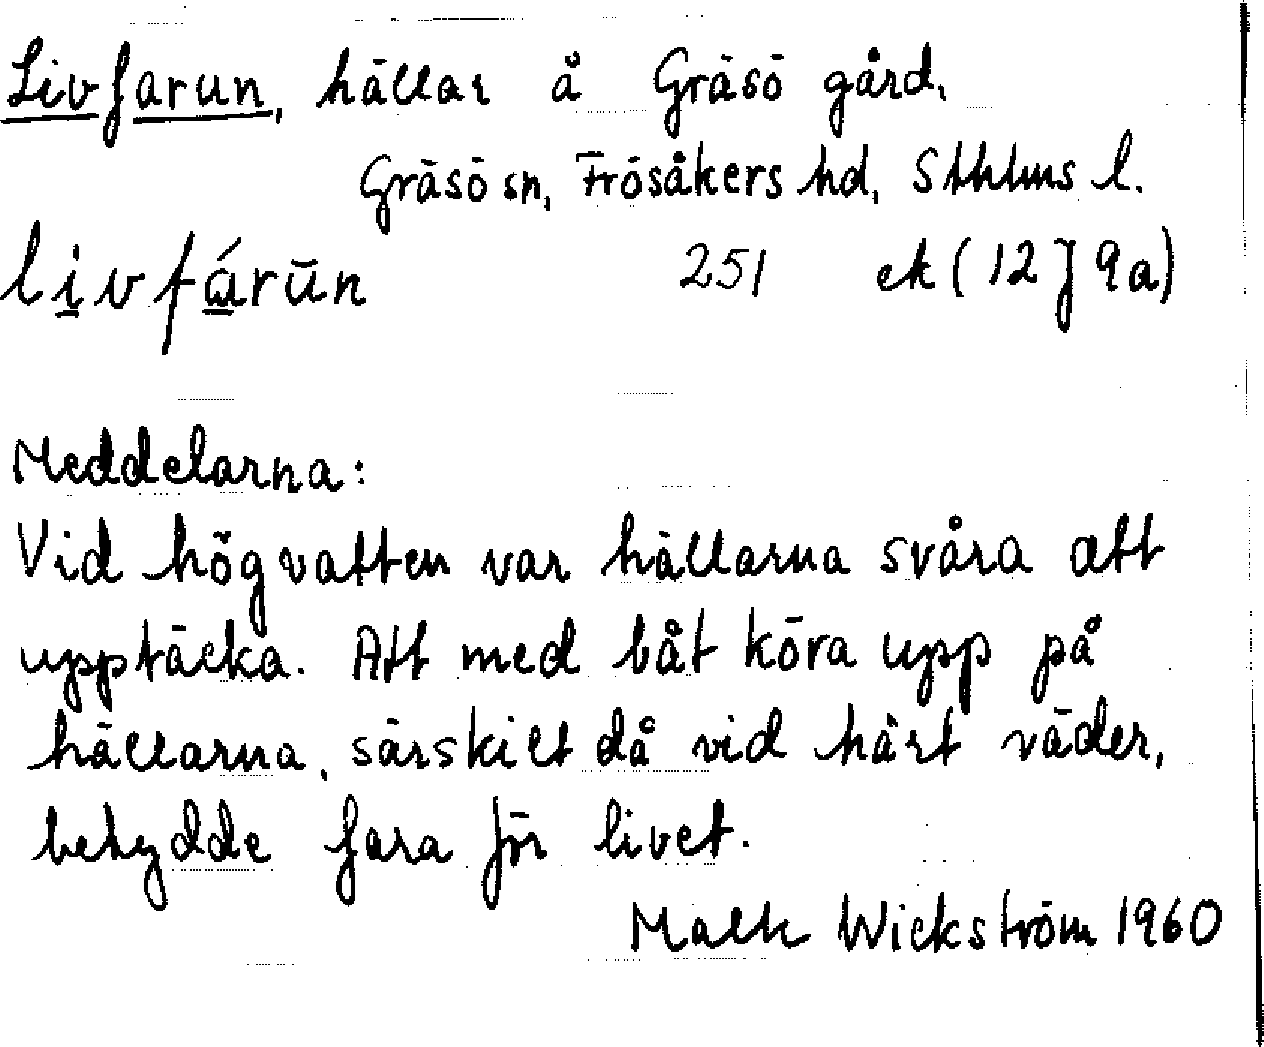 Livfarun, hällar å Gräsö gård,
Gräsö sn, Frösåkers hd, Sthlms l.
livfárūn 251 ek (12J9a)
Meddelarna:
Vid högvatten var hällarna svåra att
upptäcka. Att med båt köra upp på
hällarna, särskilt då vid hårt väder,
betydde fara för livet.
Wickström 1960